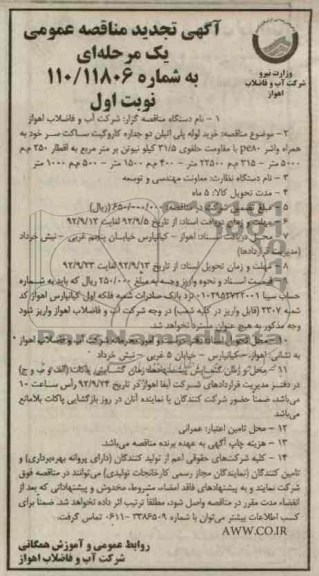 آگهی تجدید مناقصه عمومی
یک مرحله‌ای
به شماره ۱۱۰/۱۱۸۰۶
نوبت اول
وزارت نیرو
شرکت آب و فاضلاب
اهواز
۱ - نام دستگاه مناقصه گزار: شرکت آب و فاضلاب اهواز
۲ - موضوع مناقصه: خرید لوله پلی اتیلن دو جداره کاروگیت ساکت سر خود به
همراه واشر pe۸۰ با مقاومت حلقوی ۳۱/۵ کیلو نیوتن بر متر مربع به اقطار ۲۵۰ م‌م
۵۰۰۰ متر - ۳۱۵ م‌م ۲۲۵۰۰ متر - ۴۰۰ م‌م ۱۵۰۰ متر - ۵۰۰ م‌م ۱۰۰۰ متر
۳ - نام دستگاه نظارت: معاونت مهندسی و توسعه
۴ - مدت تحویل کالا: ۵ ماه
۵ - مبلغ تضمین شرکت در مناقصه: ۶۵۰/۰۰۰/۰۰۰ (ریال)
۶ - مهلت و زمان دریافت اسناد: از تاریخ ۹۲/۹/۵ لغایت ۹۲/۹/۱۲
۷ - محل دریافت اسناد: اهواز - کیانپارس خیابان پنجم غربی - نبش خرداد
(مدیریت قراردادها)
۸ - مهلت و زمان تحویل اسناد: از تاریخ ۹۲/۹/۱۳ لغایت ۹۲/۹/۲۳
۹ - قیمت اسناد و نحوه واریز وجه به مبلغ ۲۵۰/۰۰۰ ریال که باید به شماره
حساب سیبا ۰۱۰۲۹۵۲۷۲۲۰۰۱ نزد بانک صادرات شعبه فلکه اول کیانپارس اهواز کد
شعبه ۲۳۰۷ (قابل واریز در کلیه شعب) در وجه شرکت آب و فاضلاب اهواز واریز شود
وجه مذکور به هیچ عنوان مسترد نخواهد شد.
۱۰ - محل تحویل اسناد: دبیرخانه شرکت آب و فاضلاب اهواز
به نشانی: اهواز - کیانپارس - خیابان ۵ غربی - نبش خرداد
۱۱ - محل و زمان گشایش پیشنهادها: زمان گشایش پاکات (الف و ب و ج)
در دفتر مدیریت قراردادهای شرکت آبفا اهواز در تاریخ ۹۲/۹/۲۴ رأس ساعت ۱۰
می‌باشد، ضمناً حضور شرکت کنندگان یا نماینده آنان در روز بازگشایی پاکات بلامانع
می‌باشد.
۱۲ - محل تامین اعتبار: عمرانی
۱۳ - هزینه چاپ آگهی به عهده برنده مناقصه می‌باشد.
۱۴ - کلیه شرکت‌های حقوقی اعم از تولید کنندگان (دارای پروانه بهره‌برداری) و
تامین کنندگان (نمایندگان مجاز رسمی کارخانجات تولیدی) می‌توانند در مناقصه فوق
شرکت نمایند و به پیشنهادهای فاقد امضاء، مشروط، مخدوش و پیشنهاداتی که بعد از
انقضاء مدت مقرر در مناقصه واصل شود، مطلقاً ترتیب اثر داده نخواهد شد. ضمناً برای
کسب اطلاعات بیشتر می‌توان با شماره ۳۳۸۶۵۰۹-۰۶۱۱ تماس گرفت.
AWW.CO.IR
روابط عمومی و آموزش همگانی
شرکت آب و فاضلاب اهواز